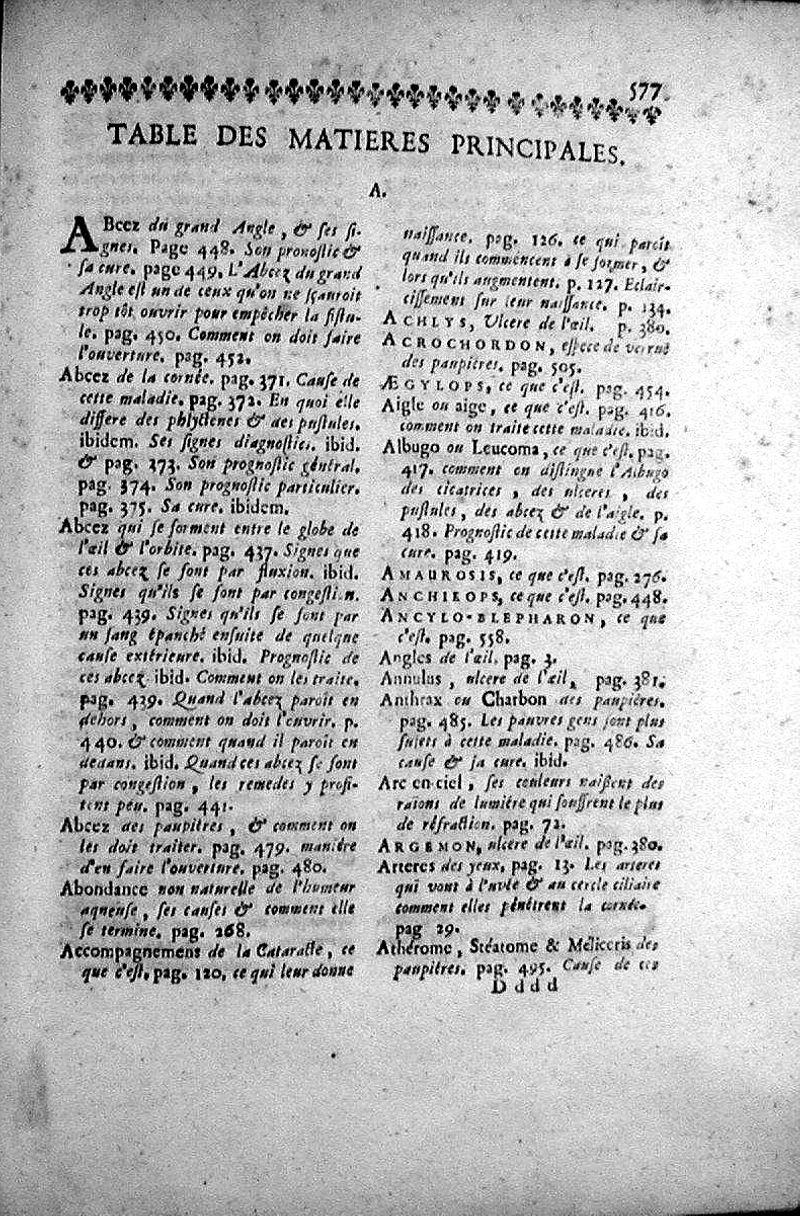 577
TABLE DES MATIERES PRINCIPALES.
A.
ABcez du grand Angle, & ses si-
gnes. Page 448. Son pronostic &
sa cure. page 449. L'Abcez du grand
Angle est un de ceux qu'on ne sçauroit
trop tôt ouvrir pour empêcher la fistu-
le. pag. 450. Comment on doit faire
l'ouverture. pag. 452.
Abcez de la cornée. pag. 371. Cause de
cette maladie. pag. 372. En quoi elle
differe des phlyctenes & des pustules.
ibidem. Ses signes diagnostics. ibid.
& pag. 373. Son prognostic général.
pag. 374. Son prognostic particulier.
pag. 375. Sa cure. ibidem.
Abcez qui se forment entre le globe de
l'œil & l'orbite. pag. 437. Signes que
ces abcez se sont par fluxion. ibid.
Signes qu'ils se sont par congestion.
pag. 439. Signes qu'ils se sont par
un sang épanché ensuite de quelque
cause extérieure. ibid. Prognostic de
ces abcez ibid. Comment on les traite.
pag. 439. Quand l'abcez paroît en
dehors, comment on doit l'ouvrir. p.
440. & comment quand il paroît en
dedans. ibid. Quand ces abcez se sont
par congestion, les remedes y profi-
tent peu. pag. 441.
Abcez des paupitres, & comment on
les doit traiter. pag. 479. maniére
d'en faire l'ouverture. pag. 480.
Abondance non naturelle de l'humeur
aqueuse, ses causes & comment elle
se termine. pag. 268.
Accompagnemens de la Cataracte, ce
que c'est, pag. 120, ce qui leur donne
naissance. pag. 126. ce qui paroît
quand ils commencent à se former, &
lors qu'ils augmentent. p. 127. Eclair-
cissement sur leur naissance. p. 134.
ACHLYS, Ulcere de l'œil. p. 380.
ACROCHORDON, espece de verruë
des paupiéres. pag. 505.
ÆGYLOPS, ce que c'est. pag. 454.
Aigle ou aige, ce que c'est. pag. 416.
comment on traite cette maladie. ibid.
Albugo ou Leucoma, ce que c'est. pag.
417. comment on distingue l'Albugo
des cicatrices, des ulceres, des
pustules, des abcez & de l'aigle. p.
418. Prognostic de cette maladie & sa
cure. pag. 419.
AMAUROSIS, ce que c'est. pag. 276.
ANCHILOPS, ce que c'est. pag. 448.
ANCYLO-BLEPHARON, ce que
c'est. pag. 558.
Angles de l'œil. pag. 3.
Annulus, ulcere de l'œil, pag. 381.
Anthrax ou Charbon des paupiéres.
pag. 485. Les pauvres gens sont plus
sujets à cette maladie. pag. 486. Sa
cause & sa cure. ibid.
Arc en ciel, ses couleurs naissent des
raïons de lumiére qui souffrent le plus
de réfraction. pag. 72.
ARGEMON, ulcere de l'œil. pag. 380.
Arteres des yeux, pag. 13. Les arteres
qui vont à l'uvée & au cercle ciliaire
comment elles pénétrent la cornée.
pag 29.
Athérome, Stéatome & Méliceris des
paupiéres. pag. 495. Cause de ces
Dddd